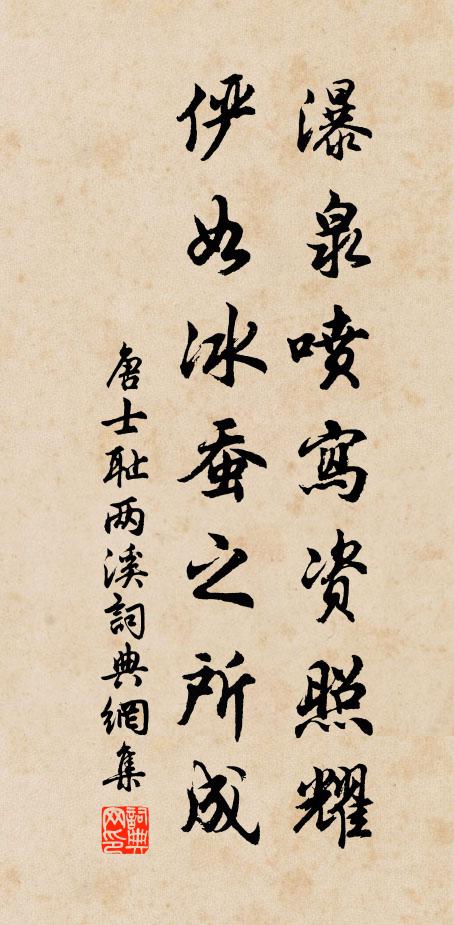 瀑泉喷寫资照耀
伻如冰蚕之所成
唐士耻两溪詞典網集
詞典网印